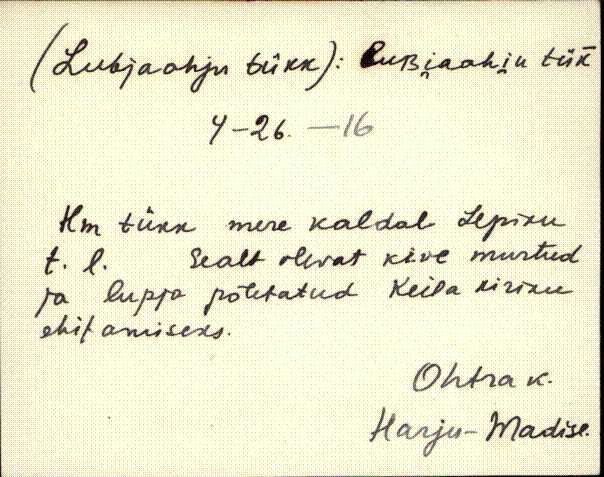 (Lubjaahju tükk): luʙi̯aahi̯u tük̄
4-26. -16
Hm tükk mere kaldal Lepiku
t. l. Sealt olevat kive murtud
ja lupja põletatud Keila kiriku
ehitamiseks.
Ohtra k.
Harju-Madise.